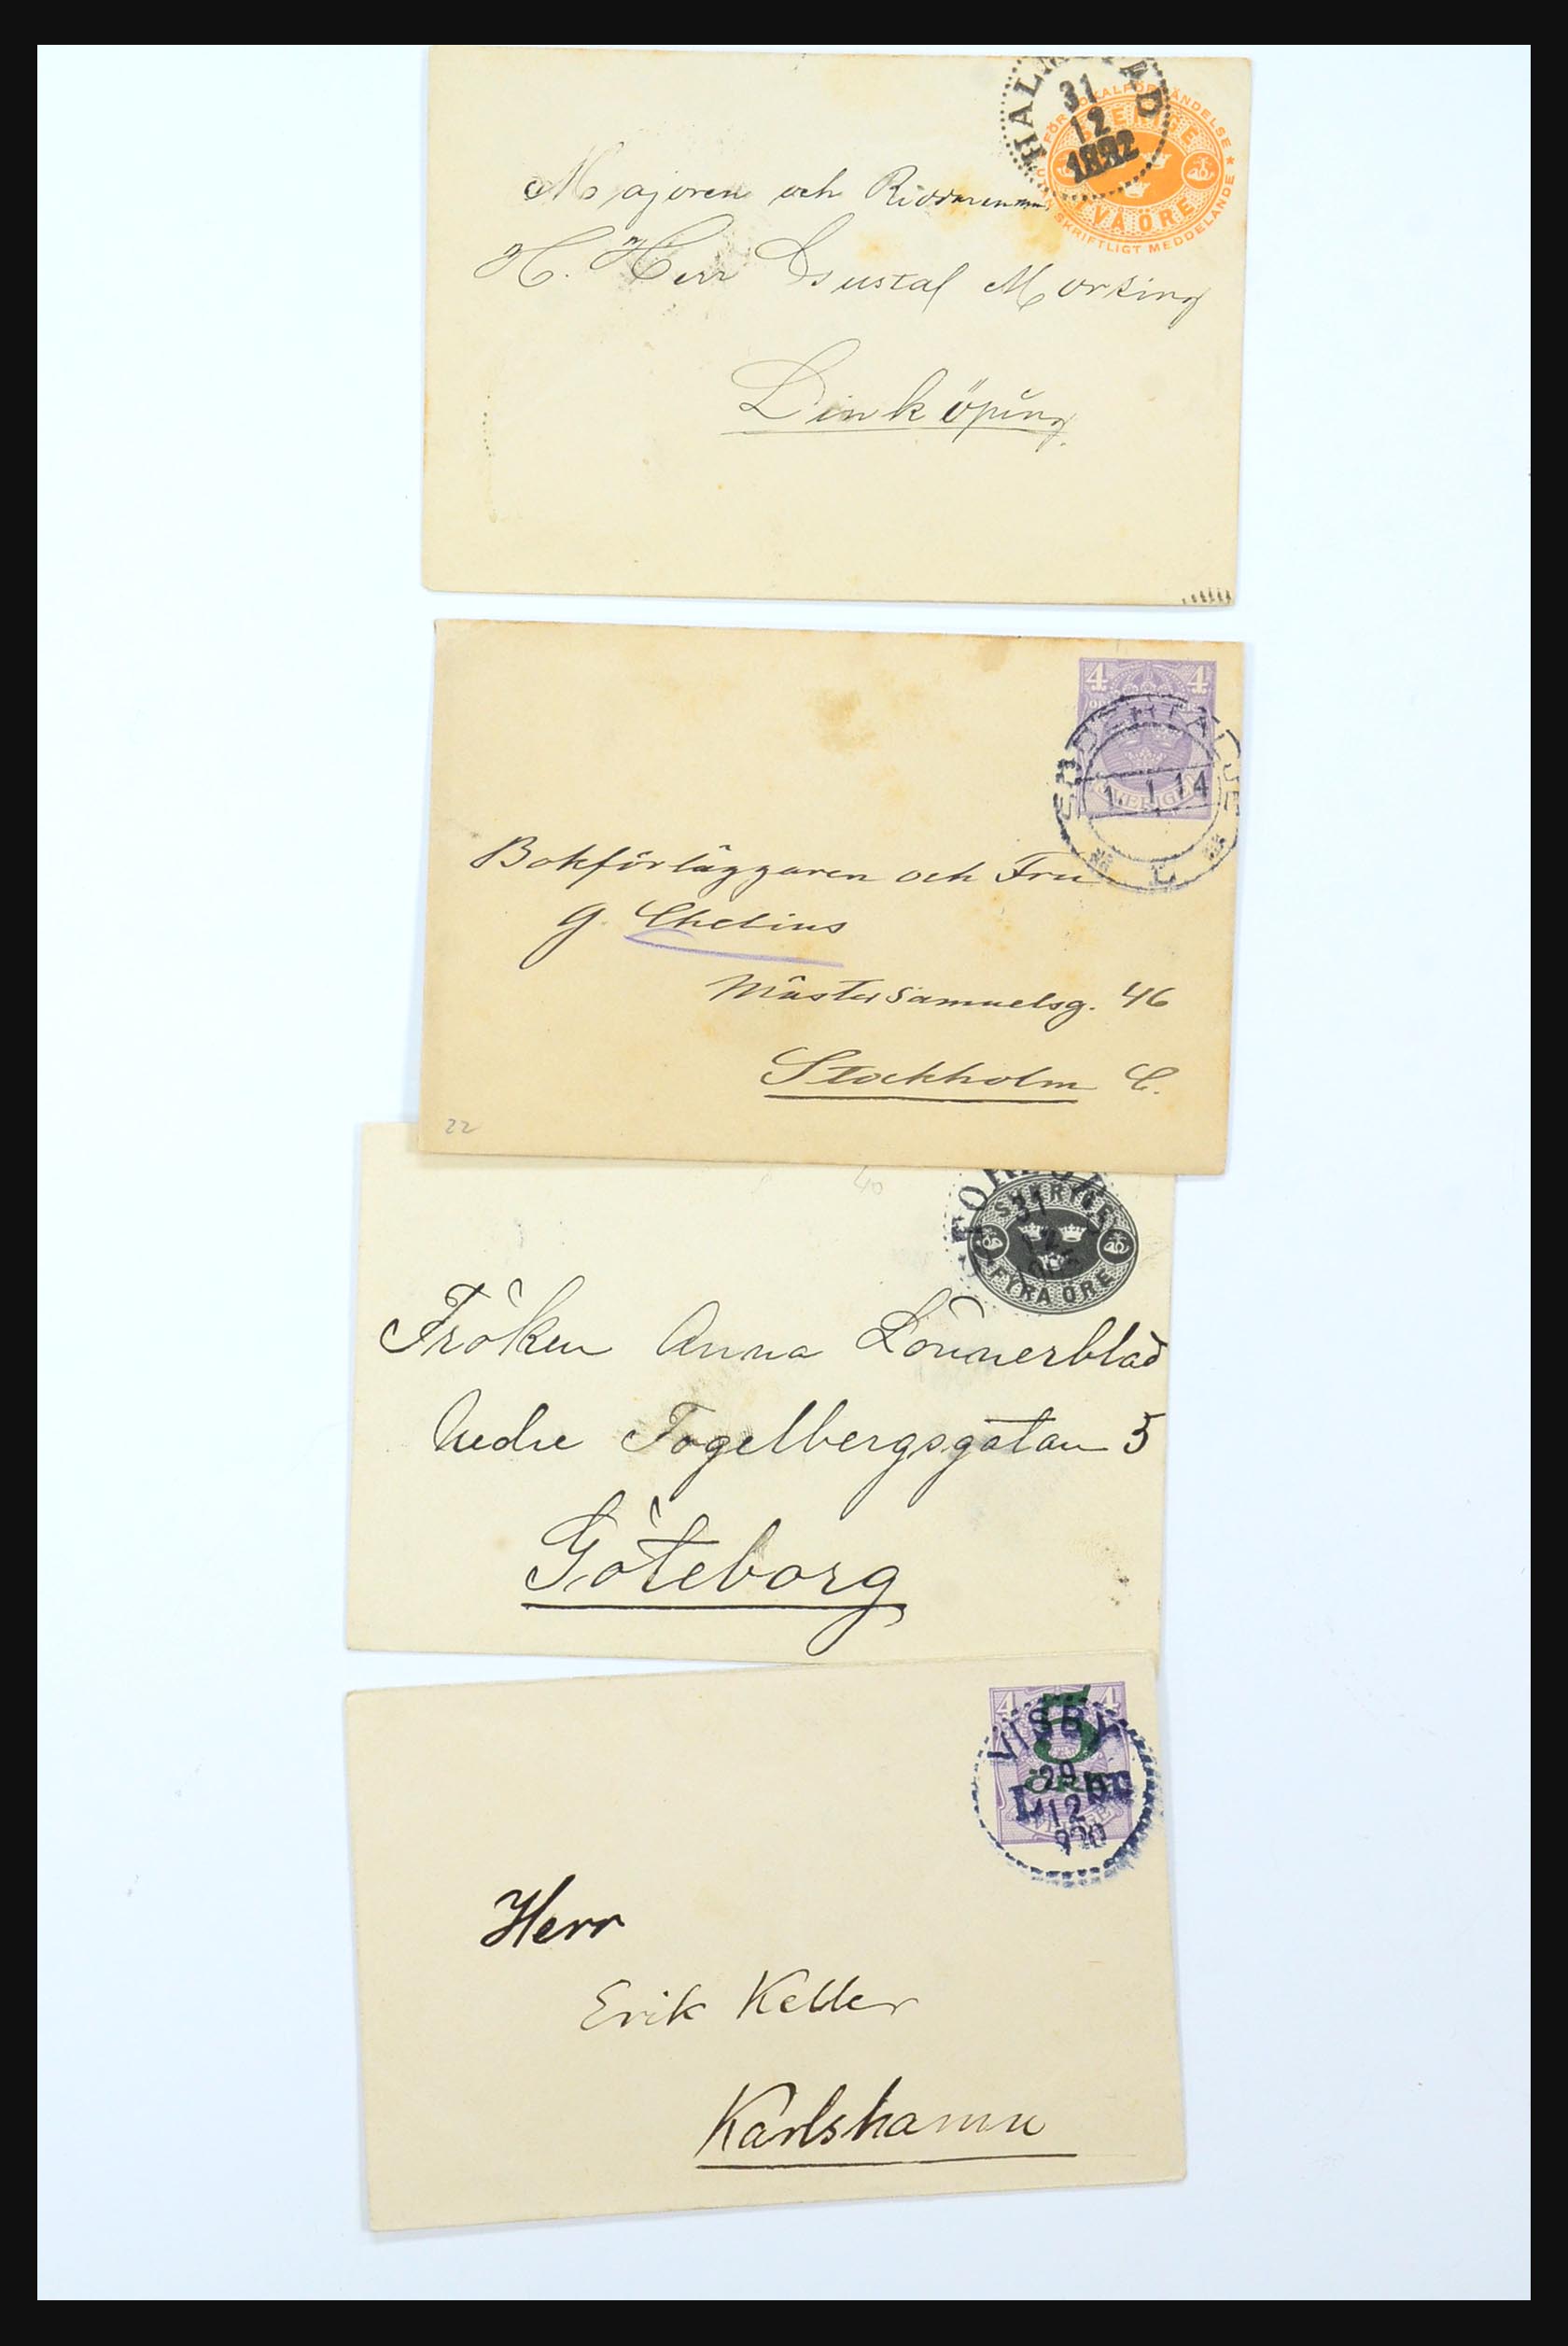 31
12
1892
FÖR LOKALFÖRSÄNDELSE *
UTAN SKRIFTLIGT MEDDELANDE *
SVERIGE
TVÅ ÖRE
Majoren och Riddaren mm
H. Herr Gustaf Morsing
Linköping.
4 4
SVERIGE
SÖDERTÄLJE
1. 1. 14
* L *
Bokförläggaren och Fru
G. Chelius
Mäster Samuelsg. 46
Stockholm C.
22
40
31
12
SVERIGE
FYRA ÖRE
Fröken Anna Lönnerblad
Nedre Fogelbergsgatan 5
Göteborg
4 4
5
ÖRE
VISBY
29
12
920
Herr
Erik Keller
Karlshamn